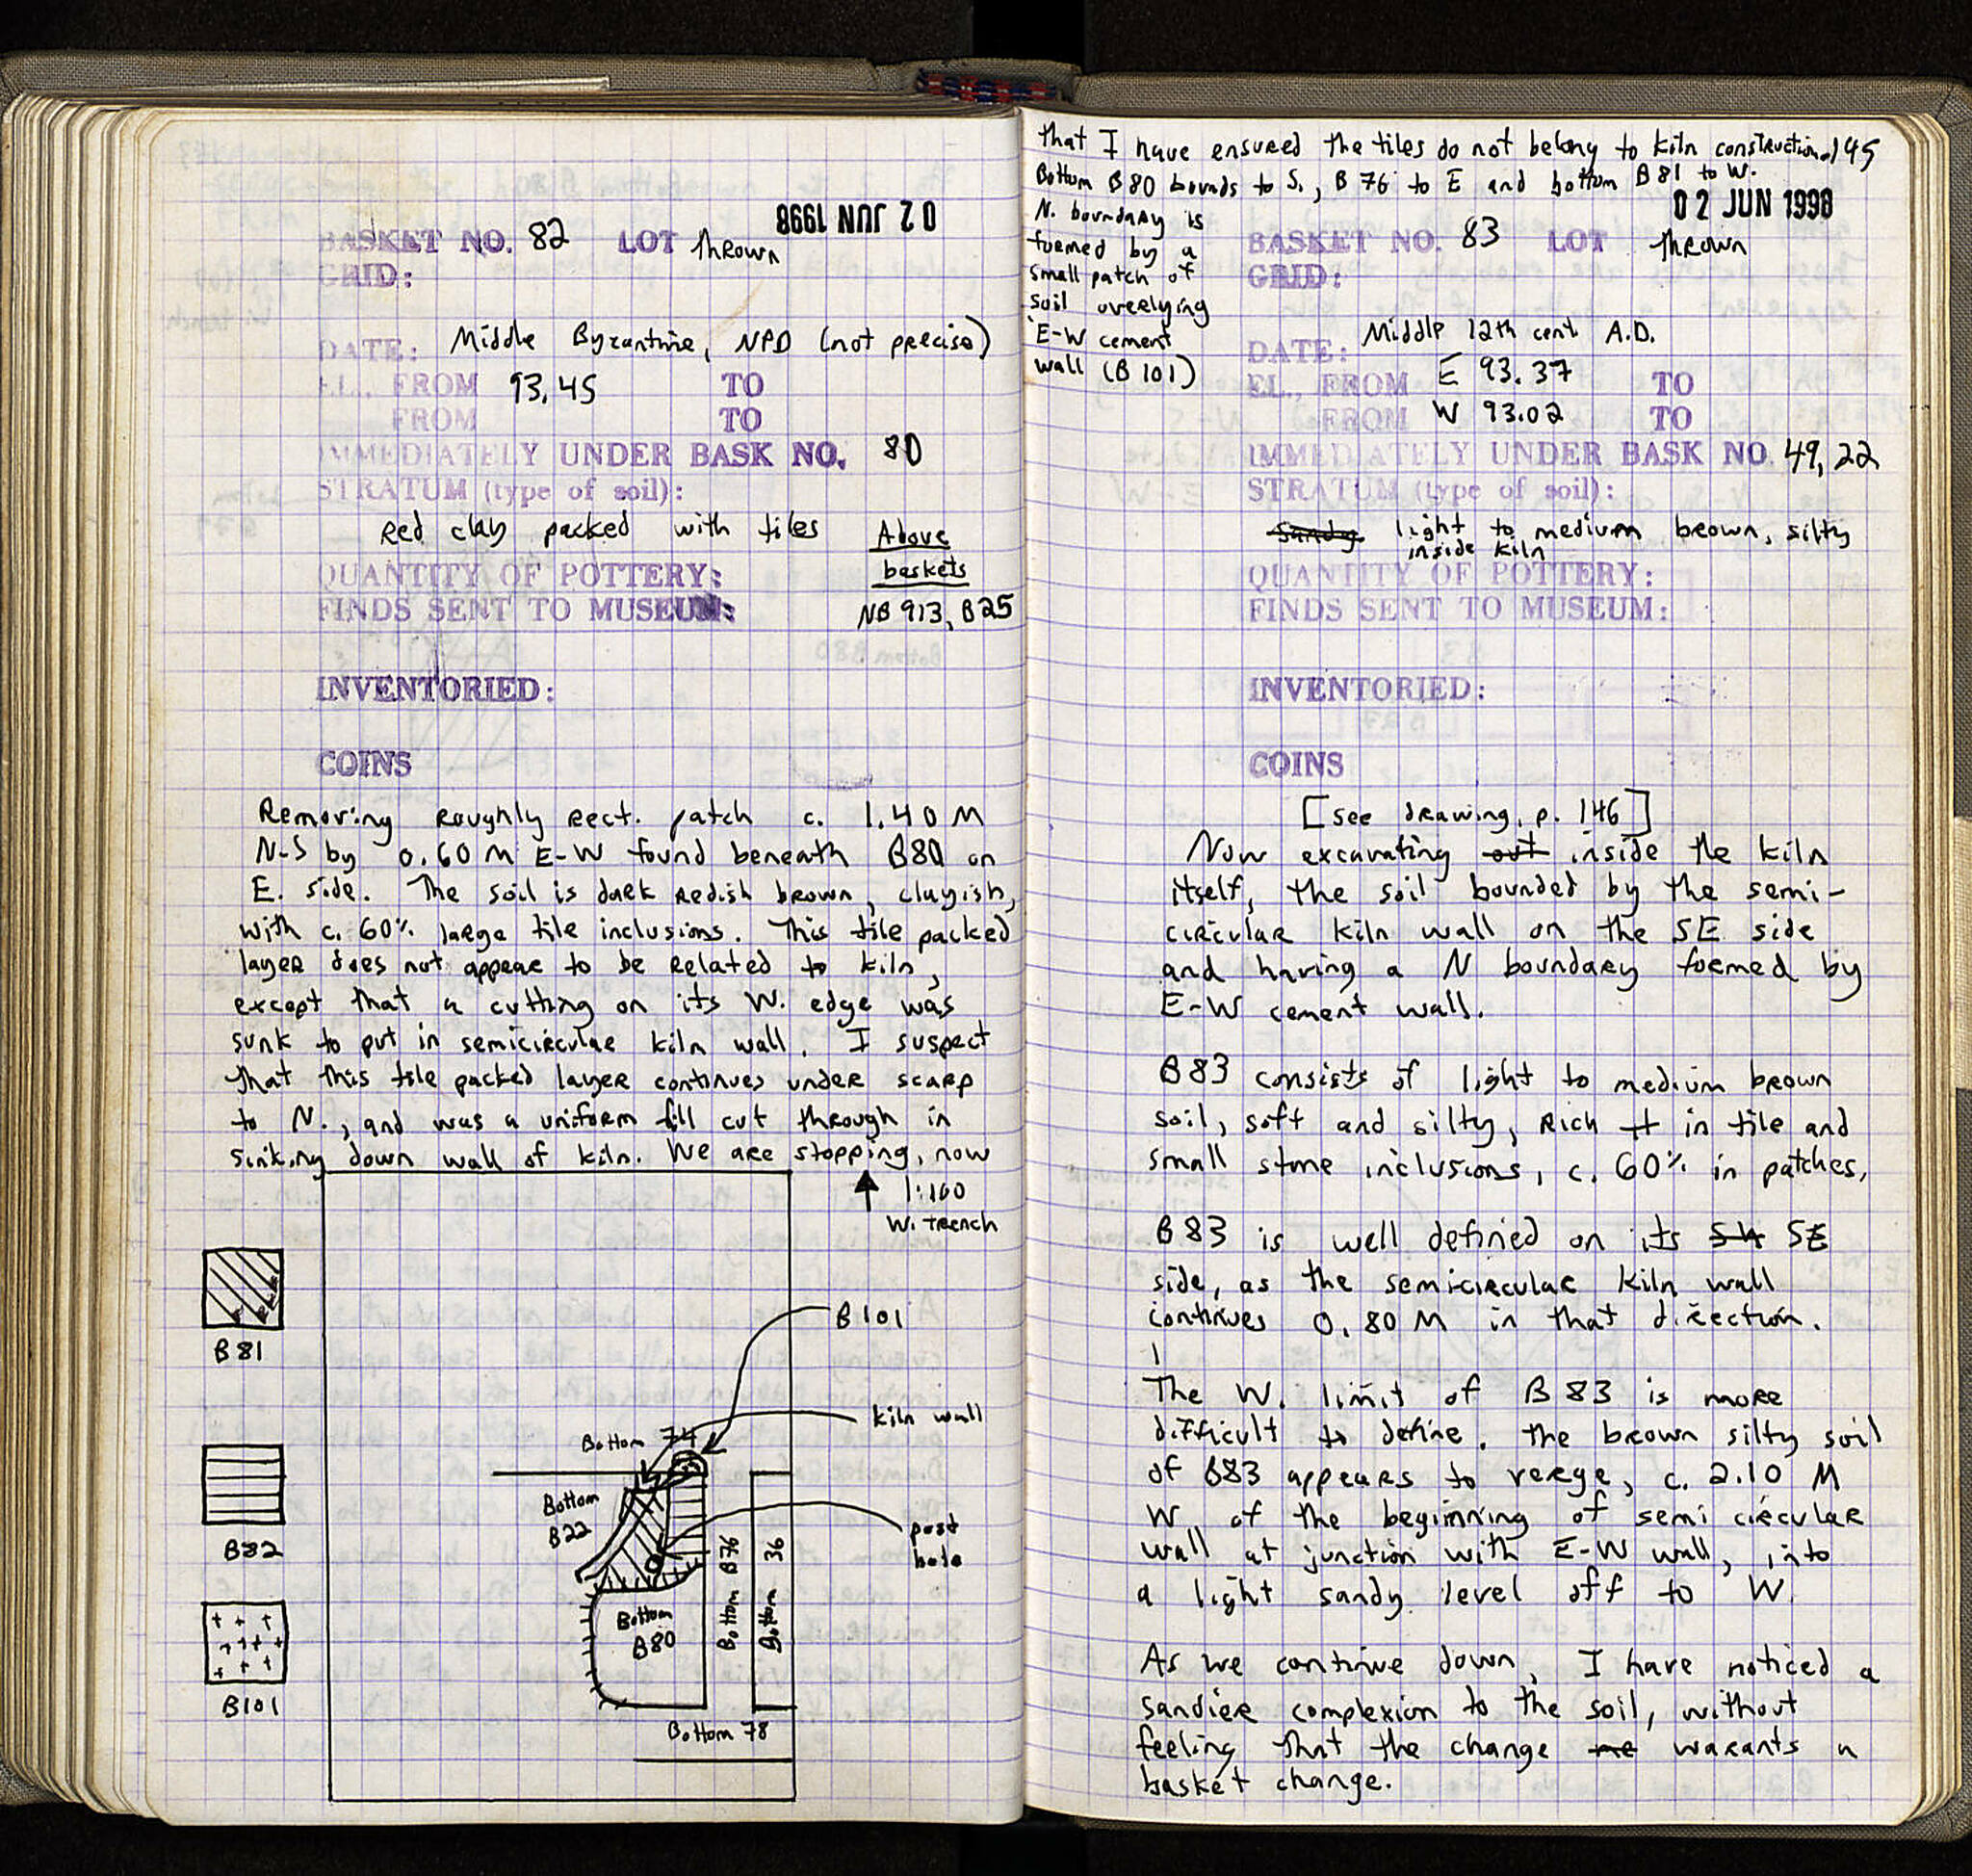 02 JUN 1998
BASKET NO. 82 LOT thrown
GRID:
DATE: Middle Byzantine, NPD (not precise)
EL., FROM 93.45 TO
FROM TO
IMMEDIATELY UNDER BASK NO. 80
STRATUM (type of soil):
Red clay packed with tiles
Above
baskets
NB 913, B25
QUANTITY OF POTTERY:
FINDS SENT TO MUSEUM:
INVENTORIED:
COINS
Removing roughly rect. patch c. 1.40 M
N-S by 0.60 M E-W found beneath B80 on
E. side. The soil is dark redish brown, clayish,
with c. 60% large tile inclusions. This tile packed
layer does not appear to be related to kiln,
except that a cutting on its W. edge was
sunk to put in semicircular kiln wall. I suspect
that this tile packed layer continues under scarp
to N., and was a uniform fill cut through in
sinking down wall of kiln. We are stopping, now
1:100
W. trench
B81
B82
B101
B101
kiln wall
Bottom 74
Bottom
B22
post
hole
Bottom B76
Bottom 36
Bottom
B80
Bottom 78
that I have ensured the tiles do not belong to kiln construction. 145
Bottom B80 bounds to S., B76 to E and bottom B81 to W.
N. boundary is
formed by a
small patch of
soil overlying
E-W cement
wall (B101)
02 JUN 1998
BASKET NO. 83 LOT thrown
GRID:
DATE: Middle 12th cent. A.D.
EL., FROM E 93.37 TO
FROM W 93.02 TO
IMMEDIATELY UNDER BASK NO. 49, 22
STRATUM (type of soil):
Sandy light to medium brown, silty
inside kiln
QUANTITY OF POTTERY:
FINDS SENT TO MUSEUM:
INVENTORIED:
COINS
[see drawing, p. 146]
Now excavating out inside the kiln
itself, the soil bounded by the semi-
circular kiln wall on the SE side
and having a N boundary formed by
E-W cement wall.
B83 consists of light to medium brown
soil, soft and silty, rich in tile and
small stone inclusions, c. 60% in patches,
B83 is well defined on its SW SE
side, as the semicircular kiln wall
continues 0.80 M in that direction.
The W. limit of B83 is more
difficult to define. The brown silty soil
of B83 appears to verge, c. 2.10 M
W of the beginning of semi circular
wall at junction with E-W wall, into
a light sandy level off to W.
As we continue down, I have noticed a
sandier complexion to the soil, without
feeling that the change warants a
basket change.